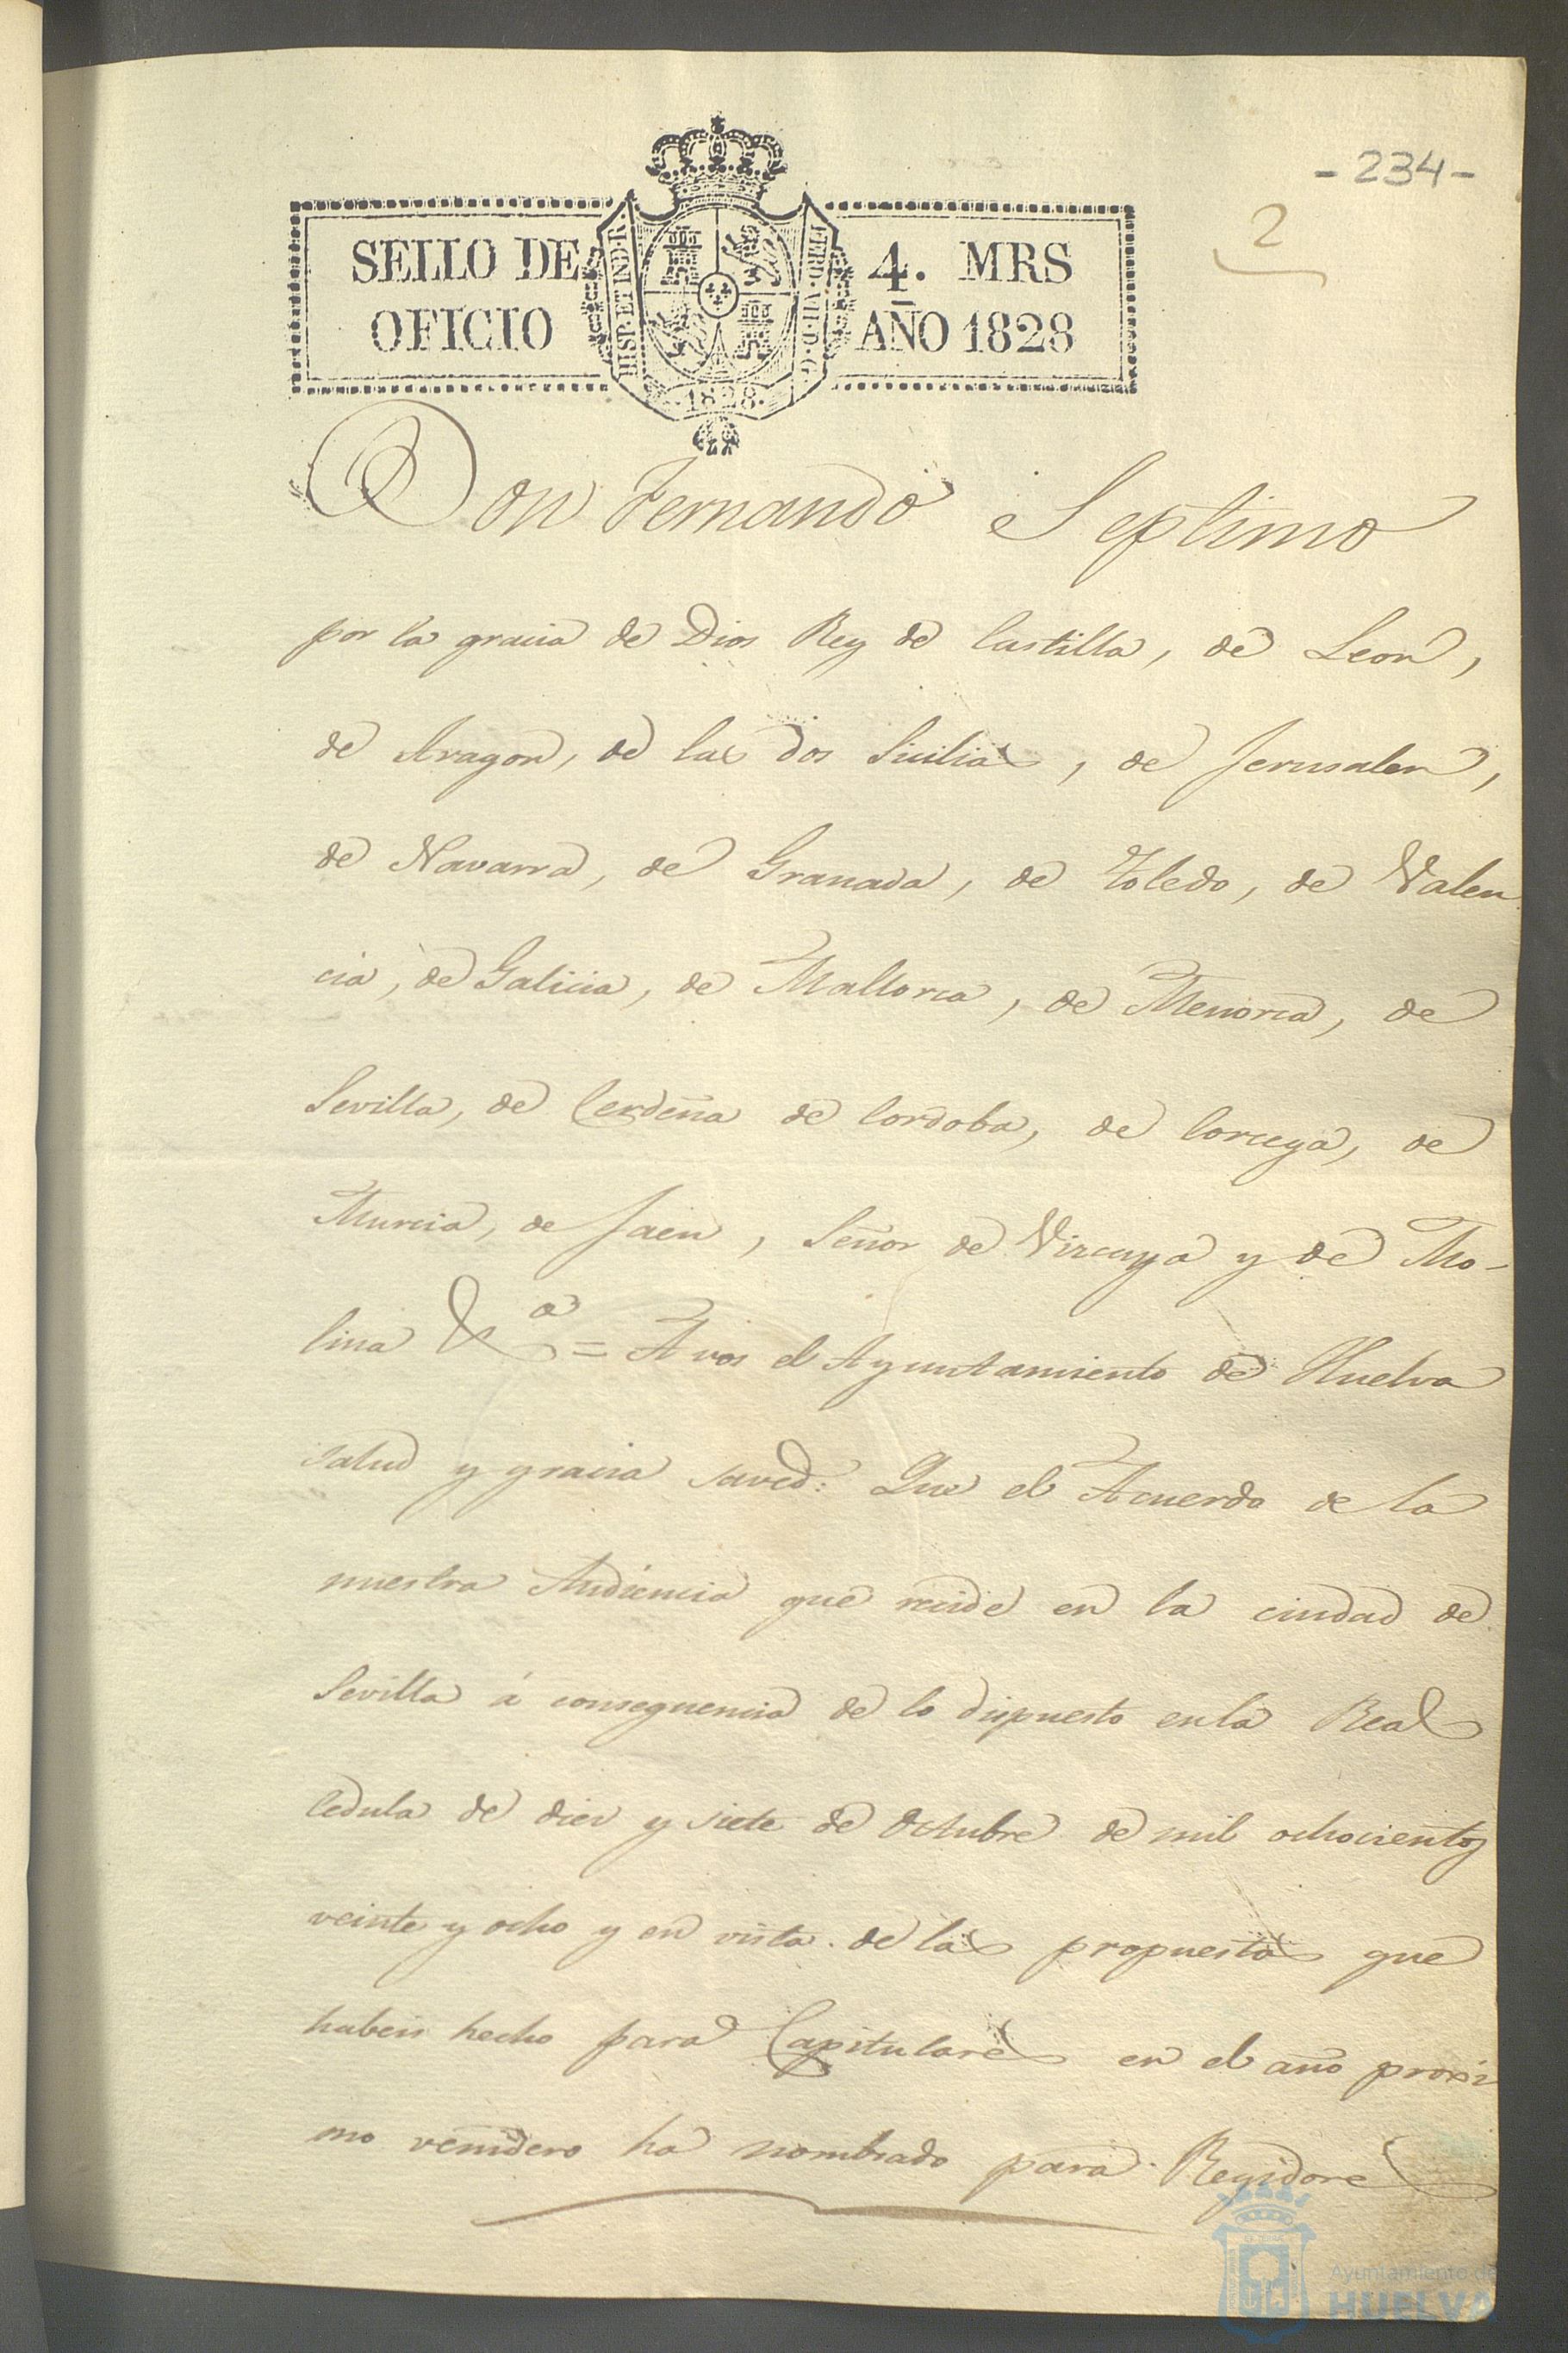 - 234 -
2
SELLO DE 4. MRS
OFICIO AÑO 1828
HISP. ET IND. R.
FERD. VII. D. G.
1828.
Don Fernando Septimo
por la gracia de Dios Rey de Castilla, de Leon,
de Aragon, de las dos Sicilias, de Jerusalen,
de Navarra, de Granada, de Toledo, de Valen
cia, de Galicia, de Mallorca, de Menorca, de
Sevilla, de Cerdeña de Cordoba, de Corcega, de
Murcia, de Jaen, Señor de Vizcaya y de Mo-
lina &a = A vos el Ayuntamiento de Huelva
salud y gracia saved: Que el Acuerdo de la
nuestra Audiencia que recide en la ciudad de
Sevilla á conseguencia de lo dispuesto en la Real
Cedula de diez y siete de Octubre de mil ochocientos
veinte y ocho y en vista de las propuestas que
habeis hecho para Capitulares en el año proxi
mo venidero ha nombrado para Regidores
Ayuntamiento de
HUELVA